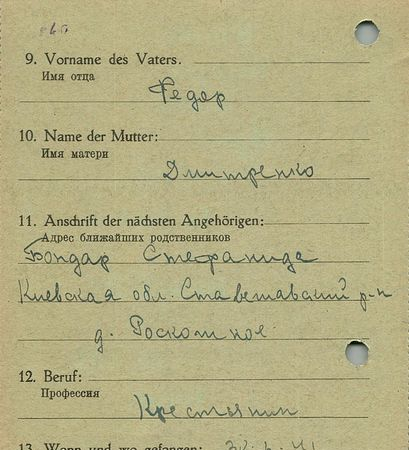 9. Vorname des Vaters.
Имя отца
Федор
10. Name der Mutter:
Имя матери
Дмитренко
11. Anschrift der nächsten Angehörigen:
Адрес ближайших родственников
Бондар Стефанида
Киевская обл. Ставищавский р-н
д. Роскошное
12. Beruf:
Профессия
Крестьянин
13. Wann und wo gefangen: